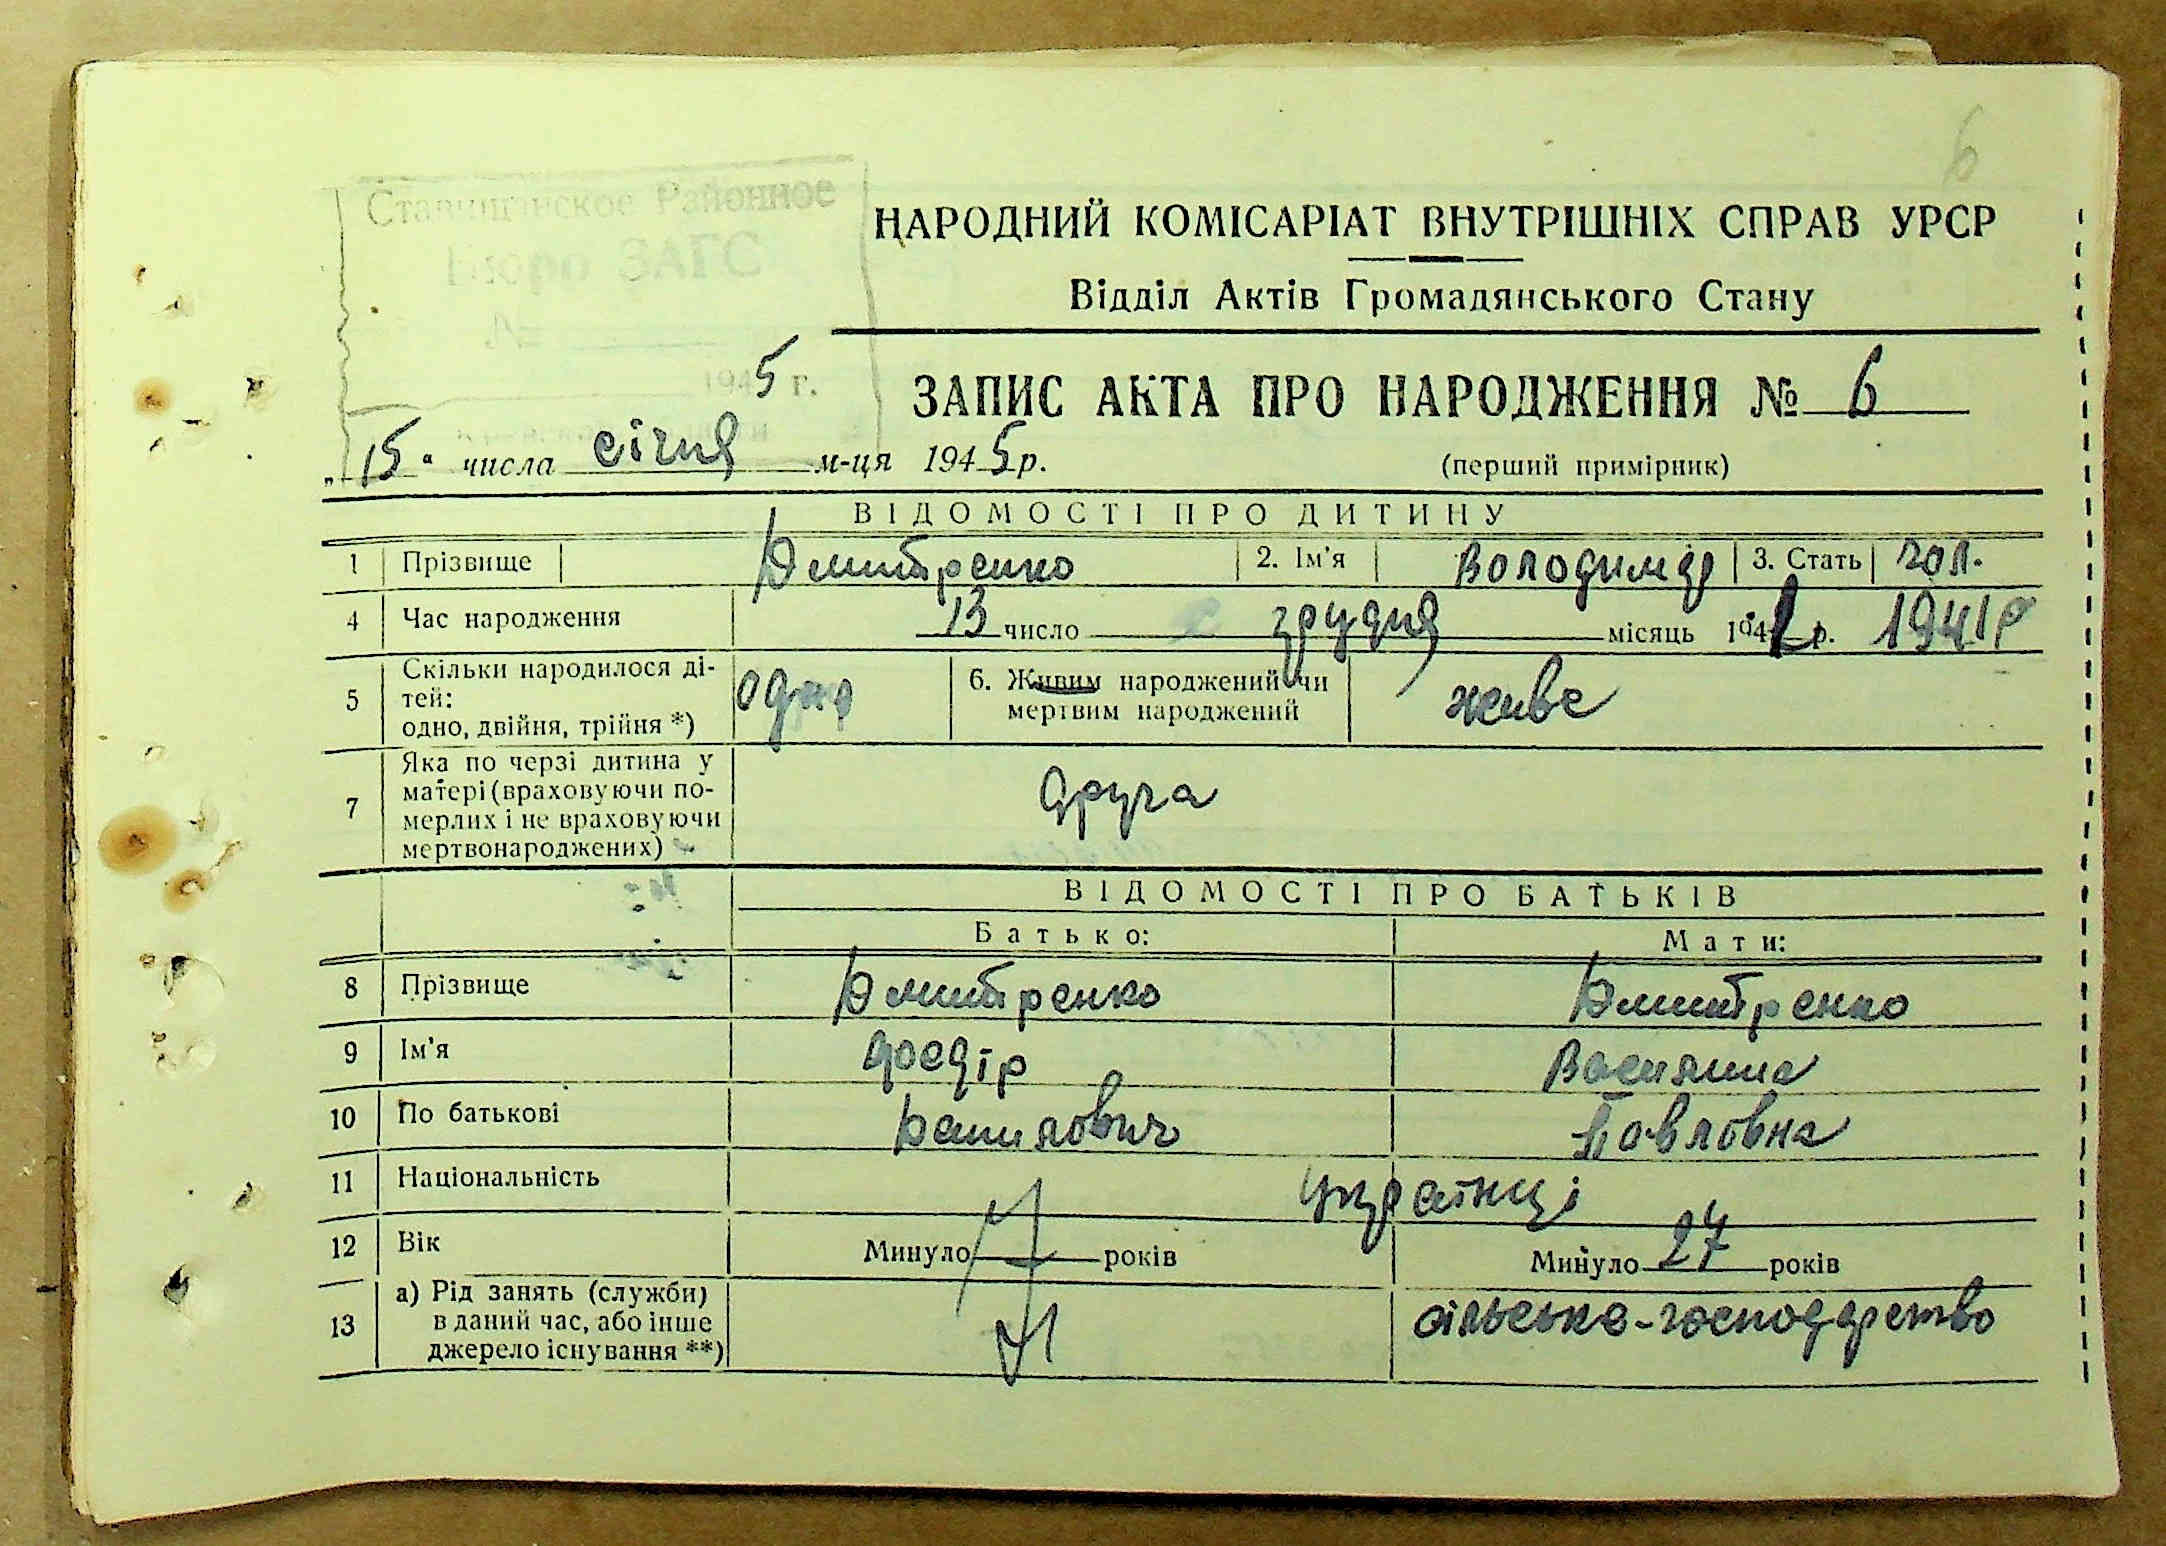 6
Ставищанское Районное
Бюро ЗАГС
№
1945 г.
НАРОДНИЙ КОМІСАРІАТ ВНУТРІШНІХ СПРАВ УРСР
Відділ Актів Громадянського Стану
ЗАПИС АКТА ПРО НАРОДЖЕННЯ № 6
„15“ числа січня м-ця 1945 р.
(перший примірник)
ВІДОМОСТІ ПРО ДИТИНУ
1 Прізвище Дмитренко 2. Ім'я Володимір 3. Стать чол.
4 Час народження 13 число грудня місяць 1941 р. 1941 р
5 Скільки народилося ді-
тей:
одно, двійня, трійня *) одно
6. Живим народжений чи
мертвим народжений живе
7 Яка по черзі дитина у
матері (враховуючи по-
мерлих і не враховуючи
мертвонароджених) друга
ВІДОМОСТІ ПРО БАТЬКІВ
Батько: Мати:
8 Прізвище Дмитренко Дмитренко
9 Ім'я Федір Василина
10 По батькові Данилович Павловна
11 Національність українці
12 Вік Минуло років Минуло 27 років
13 а) Рід занять (служби)
в даний час, або інше
джерело існування **) сільське-господарство